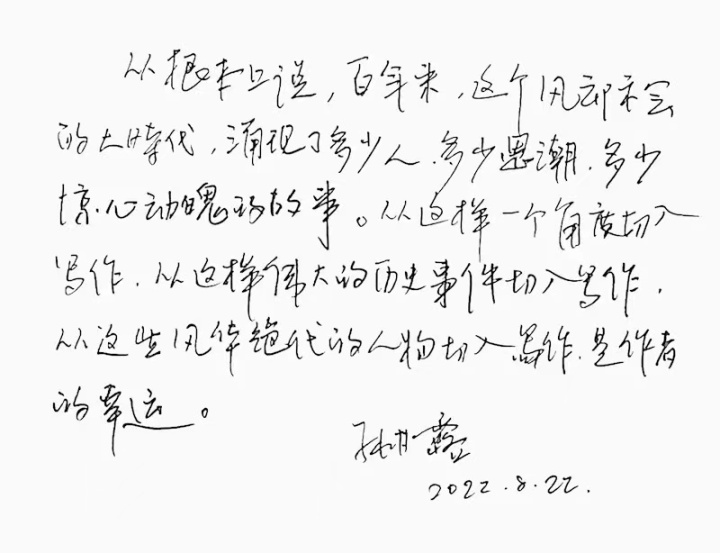 从根本上说，百年来，这个风云际会
的大時代，涌现了多少人、多少思潮、多少
惊心动魄的故事。从这样一个角度切入
写作，从这样伟大的历史事件切入写作，
从这些风华绝代的人物切入写作，是作者
的幸运。
2022.8.22.